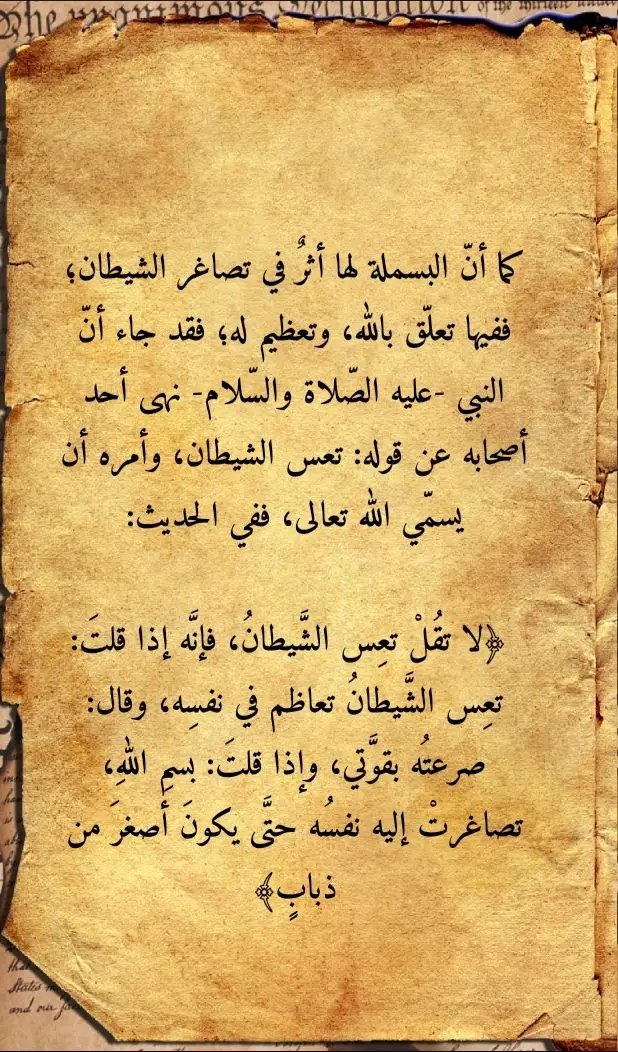 The unanimous Declaration of the thirteen united
كما أنّ البسملة لها أثرٌ في تصاغر الشيطان؛
ففيها تعلّق بالله، وتعظيم له؛ فقد جاء أنّ
النبي -عليه الصّلاة والسّلام- نهى أحد
أصحابه عن قوله: تعس الشيطان، وأمره أن
يسمّي الله تعالى، ففي الحديث:
﴿لا تقُلْ تعِس الشَّيطانُ، فإنَّه إذا قلتَ:
تعِس الشَّيطانُ تعاظم في نفسِه، وقال:
صرعتُه بقوَّتي، وإذا قلتَ: بسمِ اللهِ،
تصاغرتْ إليه نفسُه حتَّى يكونَ أصغرَ من
ذبابٍ﴾
States
and our